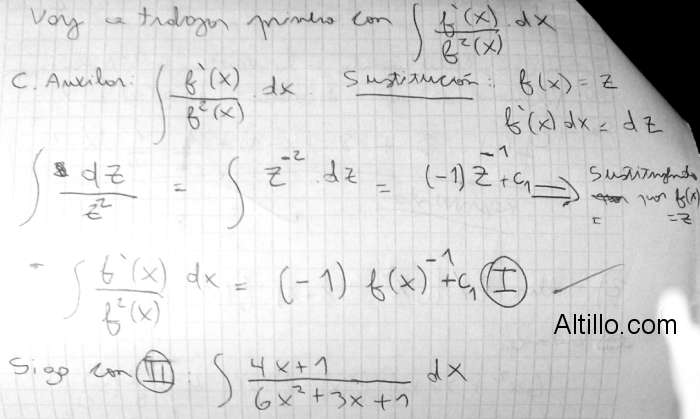 Voy a trabajar primero con ∫ f'(x)/f²(x) · dx
C. Auxiliar: ∫ f'(x)/f²(x) · dx Sustitución: f(x) = z
f'(x) dx = dz
∫ dz/z² = ∫ z⁻² · dz = (-1) z⁻¹ + c₁ ⟹ Sustituyendo
por f(x)
= z
∫ f'(x)/f²(x) dx = (-1) f(x)⁻¹ + c₁ Ⓘ ✓
Altillo.com
Sigo con II: ∫ (4x+1)/(6x²+3x+1) dx